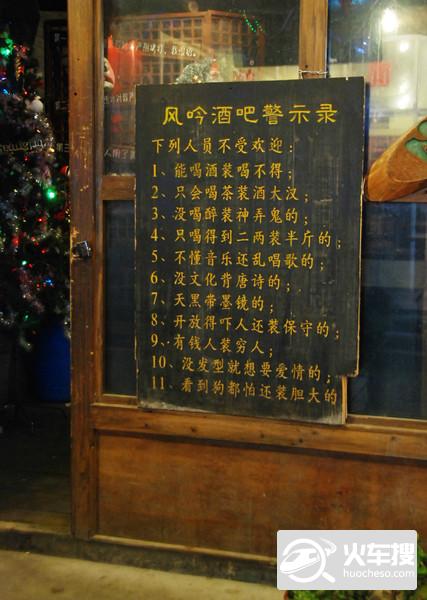 风吟酒吧警示录
下列人员不受欢迎：
1、能喝酒装喝不得；
2、只会喝茶装酒大汉；
3、没喝醉装神弄鬼的；
4、只喝得到二两装半斤的；
5、不懂音乐还乱唱歌的；
6、没文化背唐诗的；
7、天黑带墨镜的；
8、开放得吓人还装保守的；
9、有钱人装穷人；
10、没发型就想要爱情的；
11、看到狗都怕还装胆大的
火车搜
huocheso.com